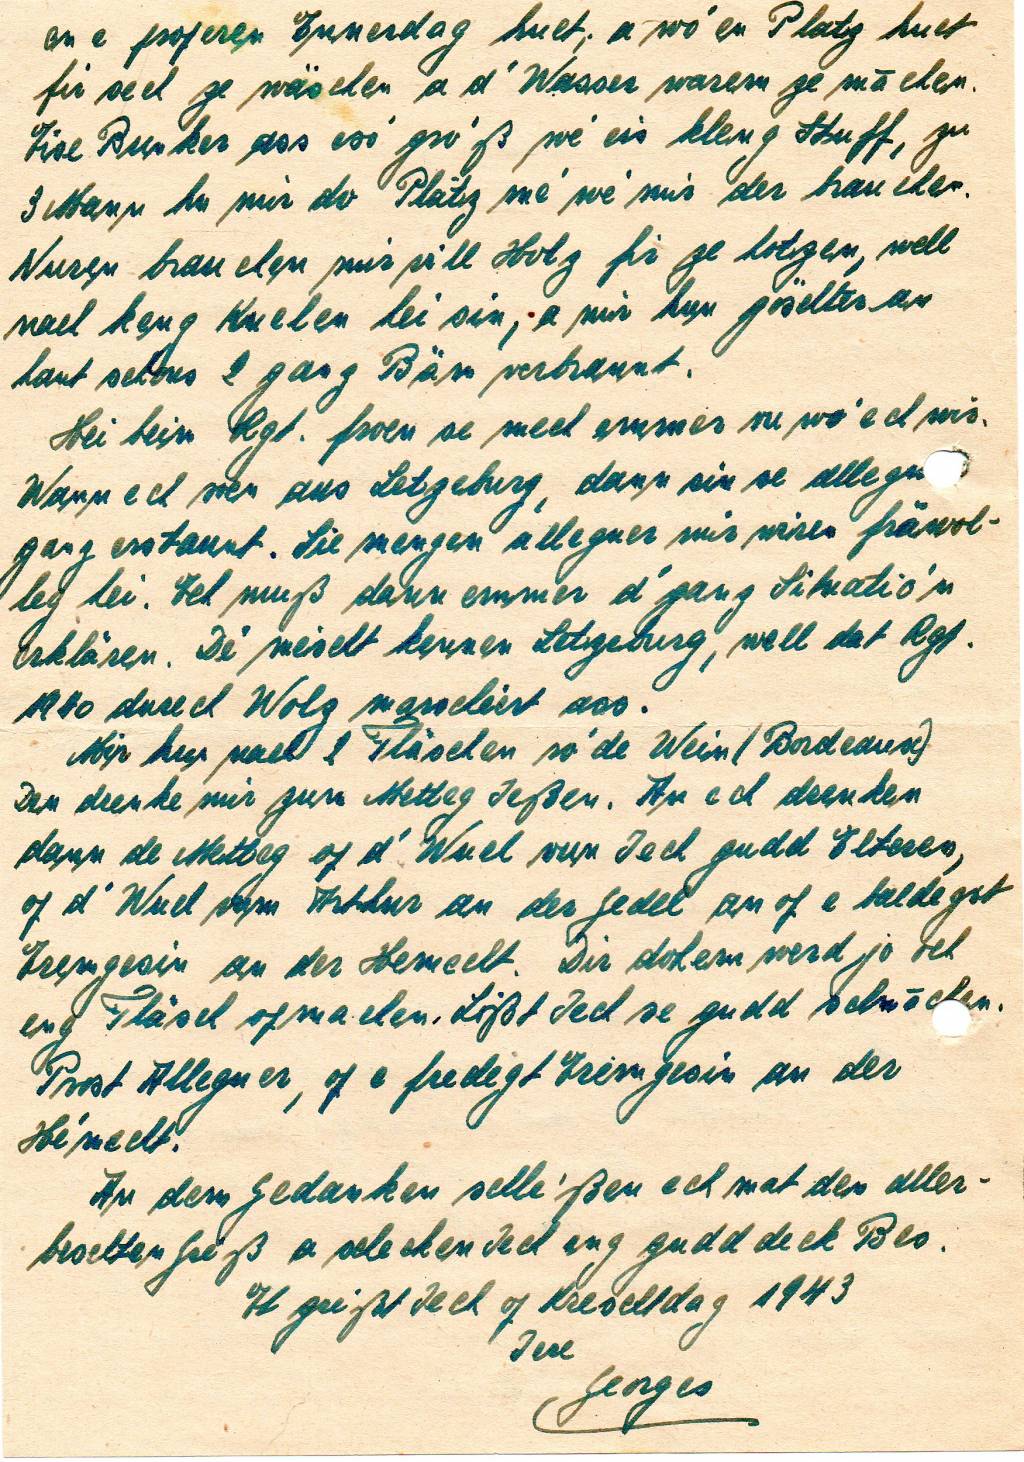 an e properen Ennerdag huet, a wó en Platz huet
fir sech ze wäschen a d' Wasser warem ze māchen.
Eise Bunker ass esó gró'ß wé eis kleng Stuff, zu
3 Mann hu mir do Plätz mé wé mir der brauchen.
Nuren brauchen mir vill Holz fir ze hetzen, well
nach keng Kuelen hei sin, a mir hun göschter an
haut schons 2 gang Bäm verbrannt.
Hei beim Rgt. froen se mech emmer vu wó ech wir.
Wann ech soen aus Letzeburg, dann sin se allegu
gang erstaunt. Sie mengen alleguer mir wiren fräwol-
leg hei. Ech muß dann emmer d' gang Situatió'n
erklären. Dé méscht kennen Letzeburg, well dat Rgt.
1940 durech Wolz marschéiert ass.
Mir hun nach 2 Fläschen ró'de Wein (Bordeaux)
Den drenke mir zum Metteg Ießen. An ech drenken
dann de Metteg of d' Wuel vun Iech gudd Elteren,
of d' Wuel vum Arthur an der Gedel an of e baldegst
Eremgesin an der Hemecht. Dir dohem werd jo och
eng Fläsch opmachen. Lößt Iech se gudd schmāchen.
Prost Alleguer, of e fredegt Eremgesin an der
Hémecht.
An dem Gedanken schlé'ßen ech mat den aller-
beschten Gréß a schecken Iech eng gudd deck Bes.
Et gréißt Iech of Kreschtdag 1943
Iere
Georges